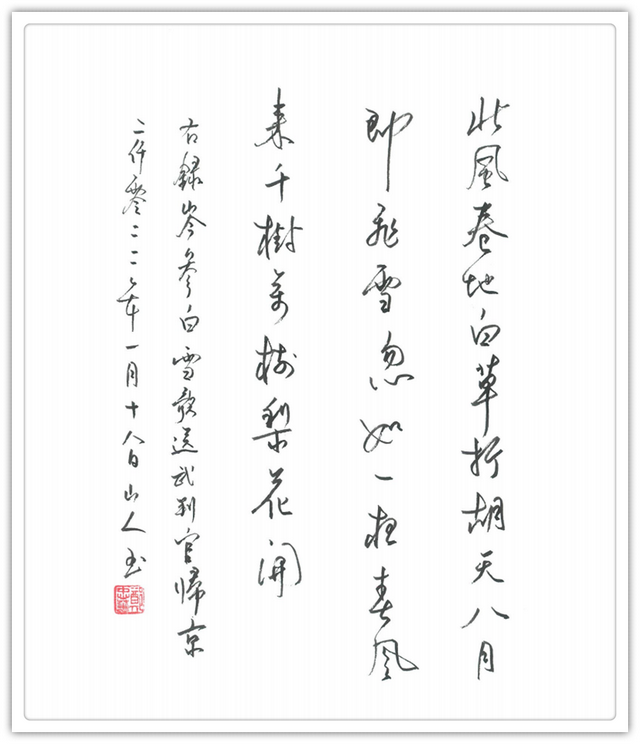 北風卷地白草折胡天八月
即飛雪忽如一夜春風
来千樹萬樹梨花開
右録岑參白雪歌送武判官歸京
二仟零二二年一月十八日山人玉